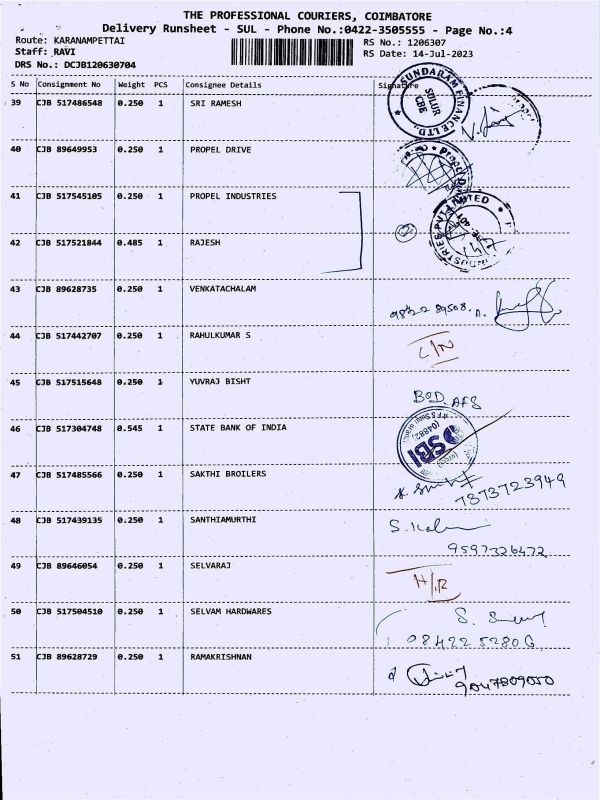 THE PROFESSIONAL COURIERS, COIMBATORE
Delivery Runsheet - SUL - Phone No.:0422-3505555 - Page No.:4
Route: KARANAMPETTAI RS No.: 1206307
Staff: RAVI RS Date: 14-Jul-2023
DRS No.: DCJB120630704
S No Consignment No Weight PCS Consignee Details Signature
39 CJB 517486548 0.250 1 SRI RAMESH
SUNDARAM FINANCE LTD
SULUR
CBE
40 CJB 89649953 0.250 1 PROPEL DRIVE
41 CJB 517545105 0.250 1 PROPEL INDUSTRIES
INDUSTRIES PVT LIMITED
42 CJB 517521844 0.485 1 RAJESH 2
43 CJB 89628735 0.250 1 VENKATACHALAM
44 CJB 517442707 0.250 1 RAHULKUMAR S
45 CJB 517515648 0.250 1 YUVRAJ BISHT BOD AFS
46 CJB 517304748 0.545 1 STATE BANK OF INDIA
SBI
47 CJB 517485566 0.250 1 SAKTHI BROILERS 7373723949
48 CJB 517439135 0.250 1 SANTHIAMURTHI
9597326472
49 CJB 89646054 0.250 1 SELVARAJ
50 CJB 517504510 0.250 1 SELVAM HARDWARES
084225280G
51 CJB 89628729 0.250 1 RAMAKRISHNAN
9047809050